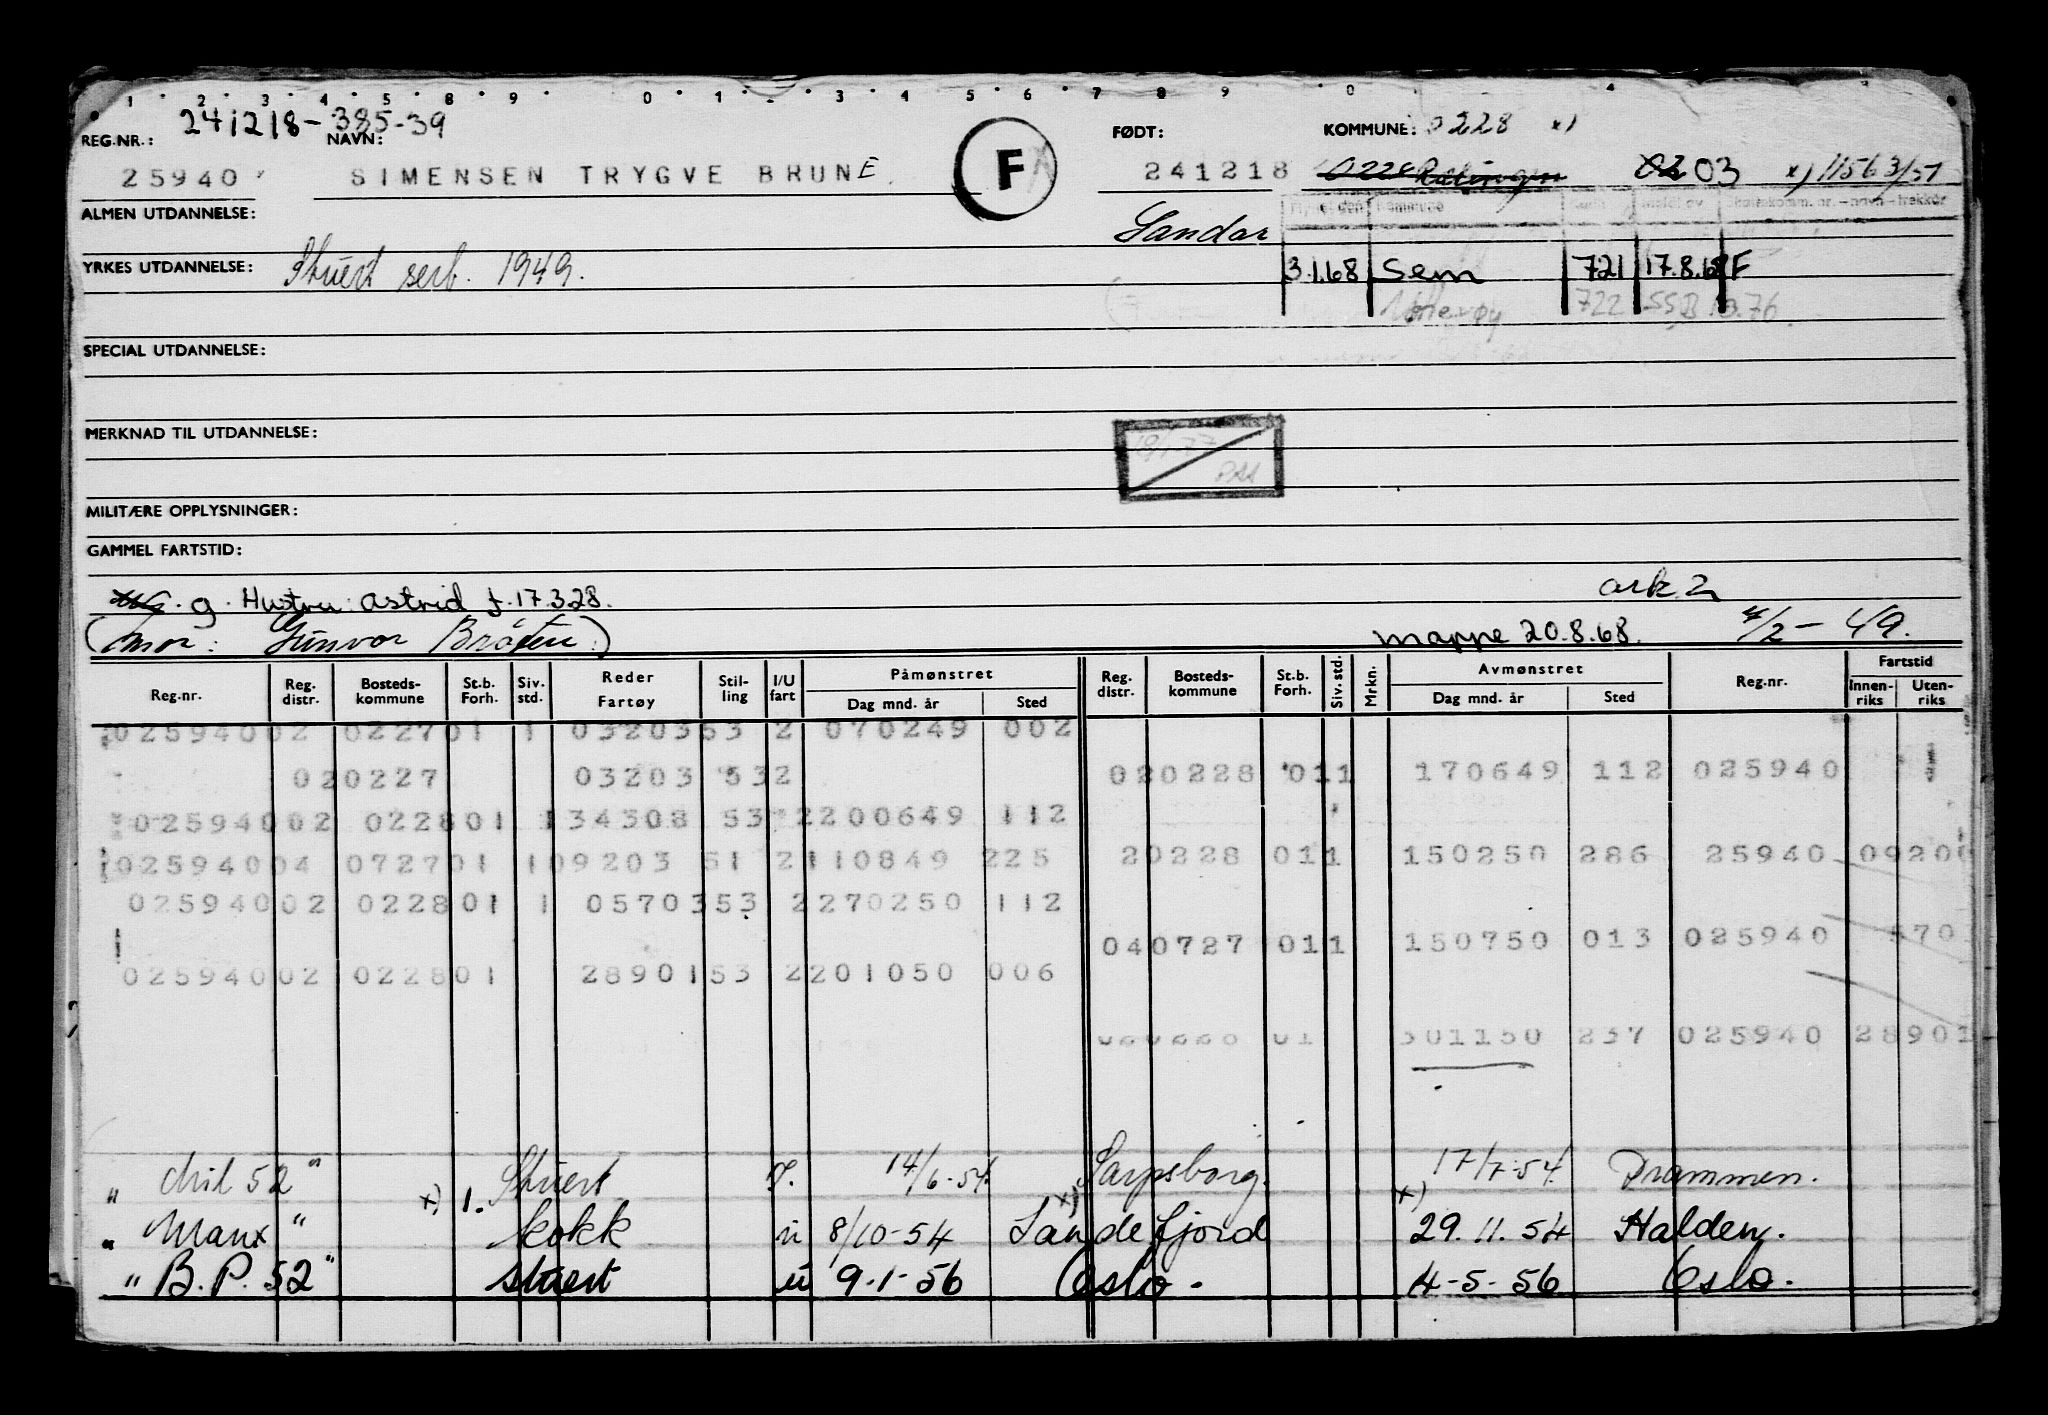 1 2 3 4 5 8 9 0 1 2 3 4 5 6 7 8 9 0
REG.NR.: 241218-385-39 NAVN: FØDT: KOMMUNE: 0228 x)
25940 SIMENSEN TRYGVE BRUNE F 241218 03 x) 11563/51
ALMEN UTDANNELSE: Sandar
YRKES UTDANNELSE: Stuert serb. 1949. 3.1.68 Sem 721 17.8.68 F
Nøtterøy 722 SSB 10.76.
SPECIAL UTDANNELSE:
MERKNAD TIL UTDANNELSE:
MILITÆRE OPPLYSNINGER:
GAMMEL FARTSTID:
g. Hustru: Astrid f. 17.3.28. ark. 2
(mor: Gunvor Bråten.) mappe 20.8.68. 4/2-49.
Reg.nr. Reg. distr. Bosteds-kommune St.b. Forh. Siv. std. Reder Fartøy Stil-ling I/U fart Påmønstret Dag mnd. år Sted Reg. distr. Bosteds-kommune St.b. Forh. Siv. std. Mrkn. Avmønstret Dag mnd. år Sted Reg.nr. Fartstid Innen-riks Uten-riks
025940 02 0227 01 1 03203 53 2 070249 002
02 0227 03203 53 2 02 0228 01 1 170649 112 025940
025940 02 0228 01 1 34308 53 2 200649 112
025940 04 0727 01 1 09203 51 2 110849 225 2 0228 01 1 150250 286 25940 0920
025940 02 0228 01 1 05703 53 2 270250 112
04 0727 01 1 150750 013 025940 570
025940 02 0228 01 28901 53 2 201050 006
01 301150 237 025940 28901
" Mil 52" x) 1. Stuert 14/6-54. Sarpsborg. 17/7-54. Drammen.
" Manx " kokk u 8/10-54 x) Sandefjord x) 29.11.54 Halden.
" B.P. 52" stuert u 9-1-56 Oslo. 4-5-56 Oslo.